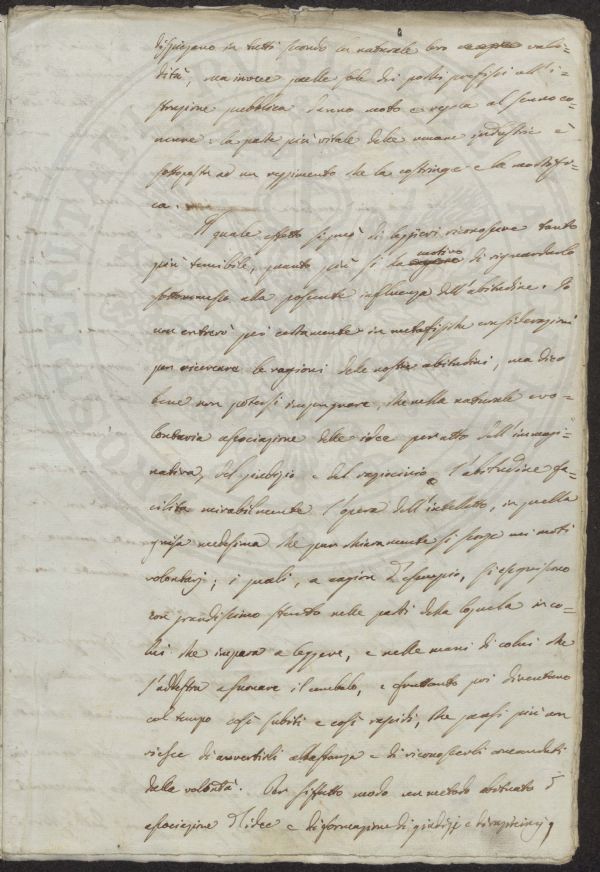 dispiegano in tutti secondo la naturale loro vali-
dità, ma invece quelle sole dei pochi prefissi all'i-
struzione pubblica danno moto e regola al senno co-
mune: la parte più vitale delle umane industrie è
sottoposta ad un reggimento che la costringe e la mortifi-
ca.
Il quale effetto si può di leggieri riconoscere tanto
più temibile, quanto più si ha motivo di riguardarlo
sottomesso alla possente influenza dell'abitudine. Io
non entrerò poi certamente in metafisiche considerazioni
per ricercare le ragioni delle nostre abitudini, ma dico
bene non potersi impugnare, che nella naturale o vo-
lontaria associazione delle idee per atto dell'immagi-
nativa, del giudizio e del raziocinio, l'abitudine fa-
cilita mirabilmente l'opera dell'intelletto, in quella
guisa medesima che pur chiaramente si scorge nei moti
volontarj; i quali, a cagion d'esempio, si eseguiscono
con grandissimo stento nelle parti della loquela in co-
lui che impara a leggere, e nelle mani di colui che
s'addestra a suonare il cembalo, e frattanto poi diventano
col tempo così subiti e così rapidi, che quasi più non
riesce di avvertirli abbastanza e di riconoscerli comandati
dalla volontà. Per siffatto modo un metodo abituato
associazione d'idee e di formazione di giudizj e di raziocinj,
5